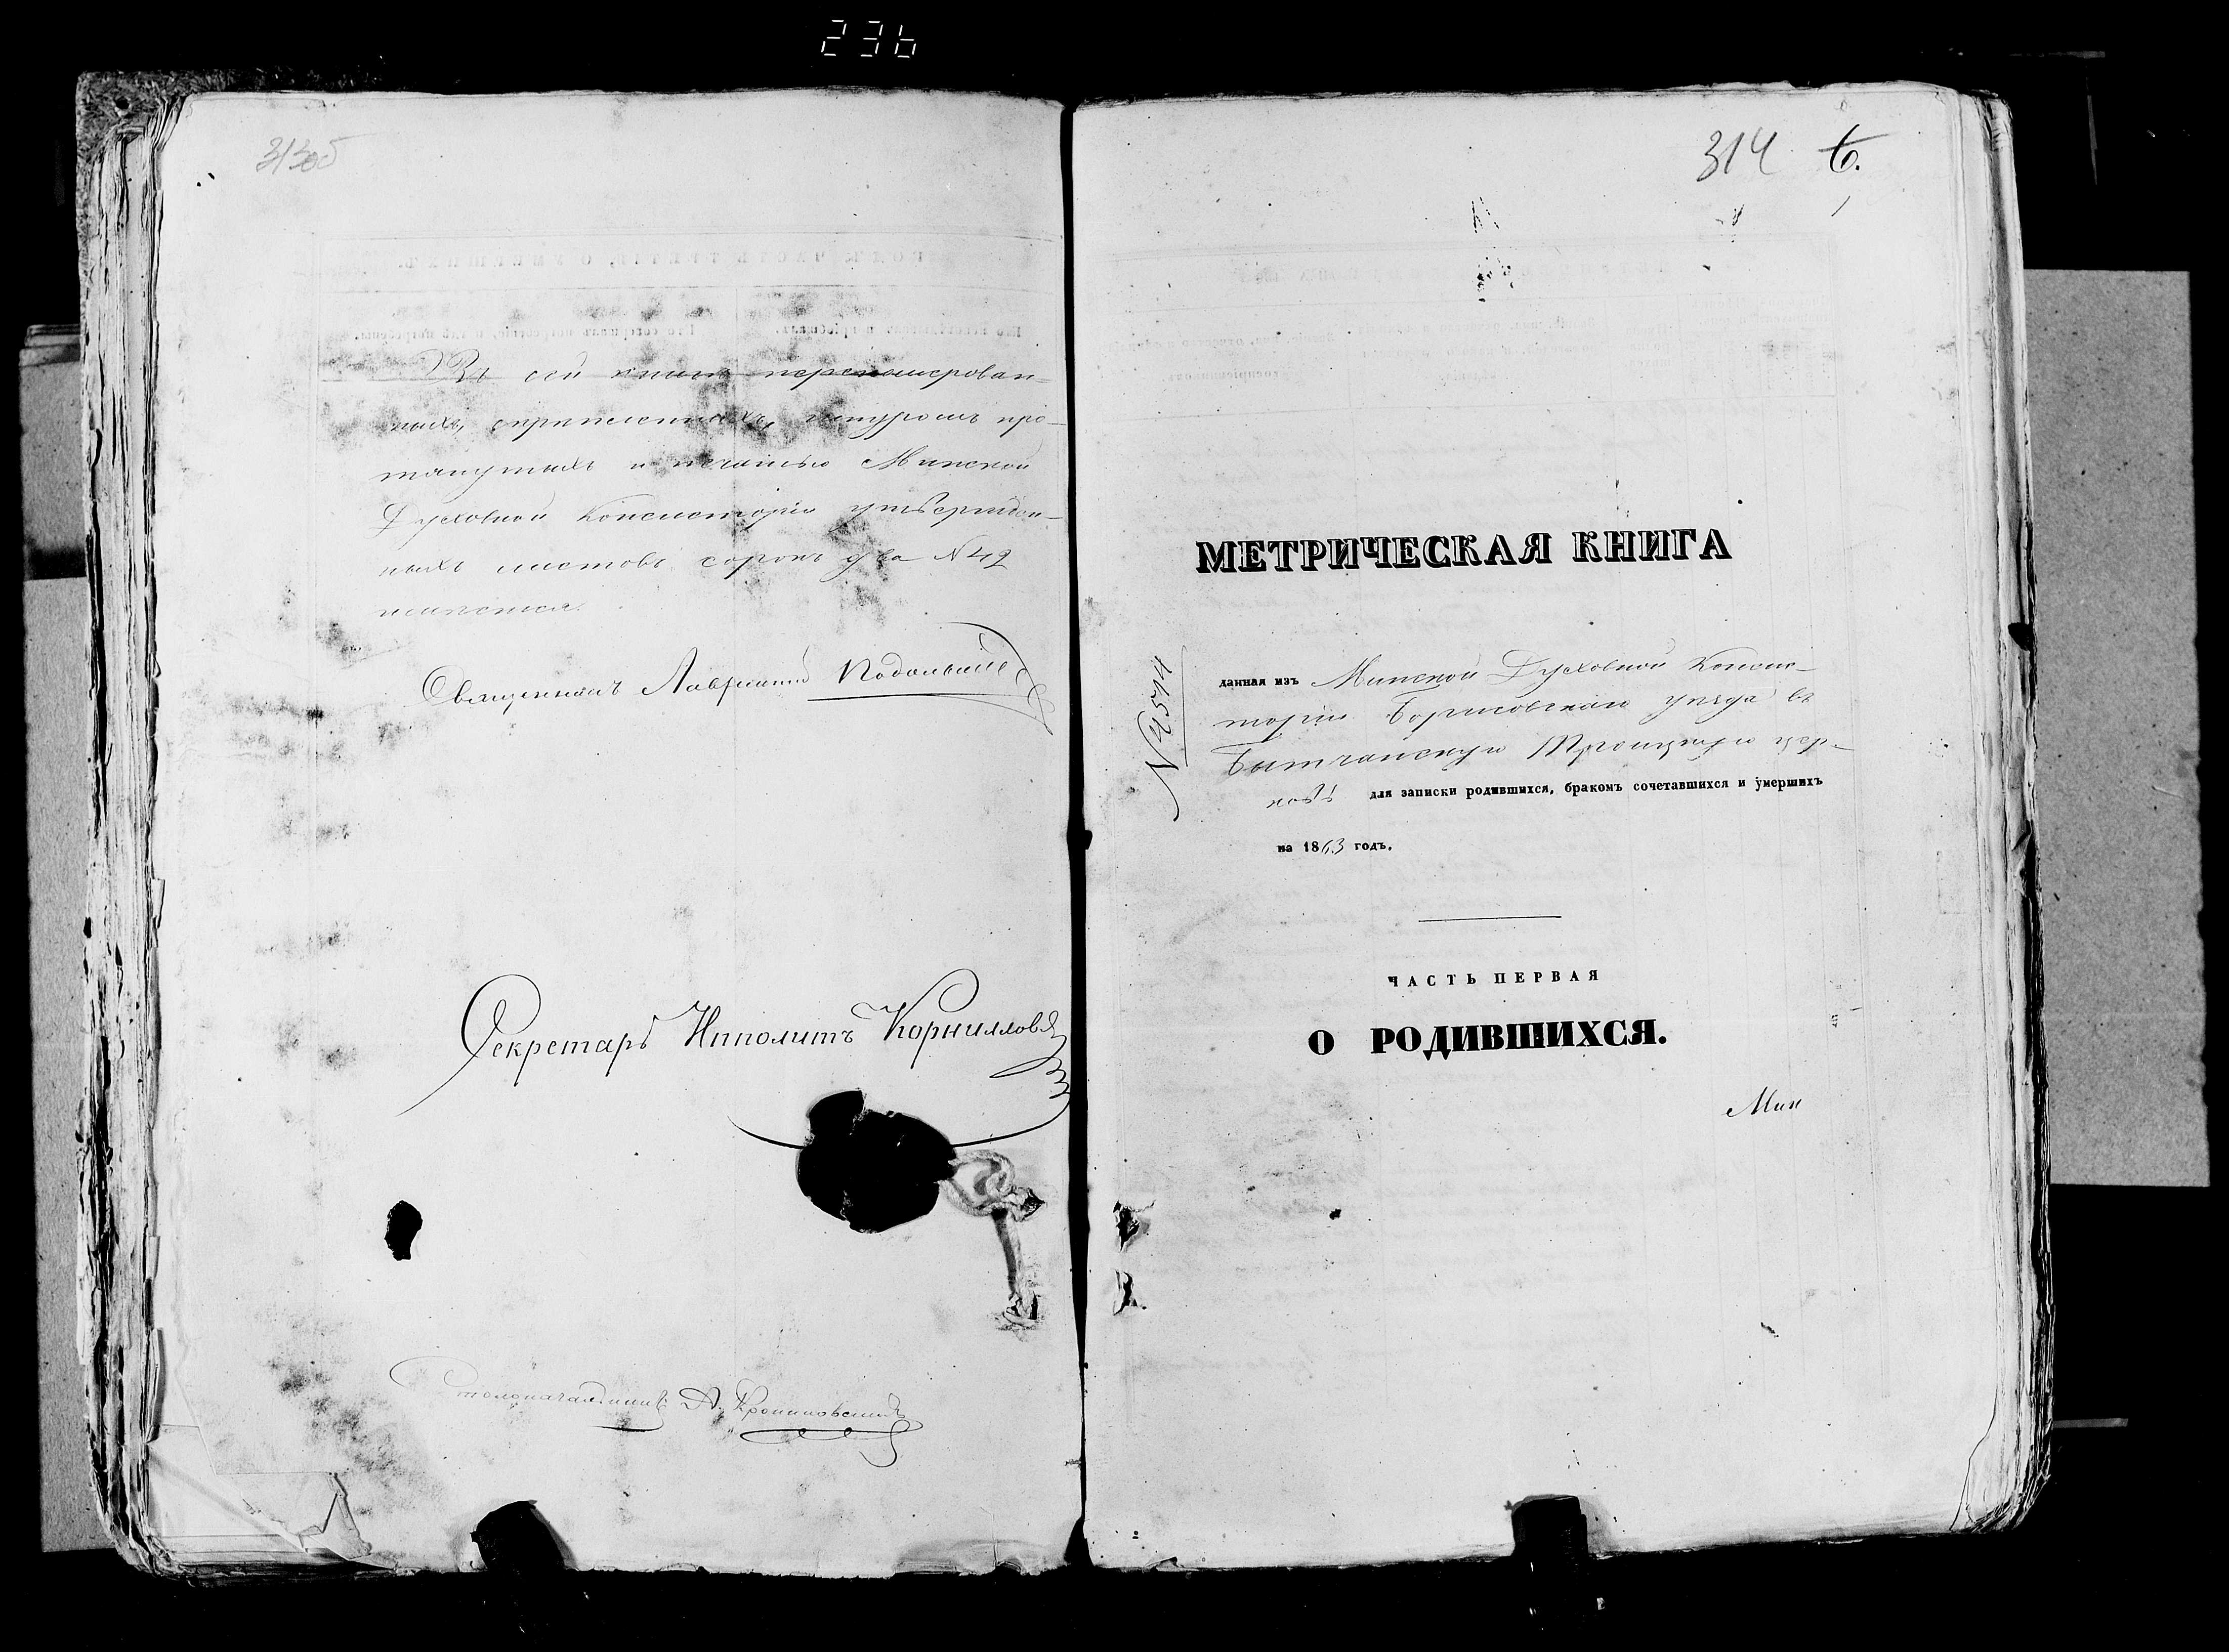 236
313об
Въ сей книгѣ перенумерован-
ныхъ, скрѣпленныхъ, шнуромъ про-
тянутыхъ и печатью Минской
Духовной Консисторіи утвержден-
ныхъ листовъ сорокъ два N 42
имѣется.
Священникъ Лаврентій
Секретарь Ипполитъ Корниловъ
Столоначальникъ А.
314 6.
МЕТРИЧЕСКАЯ КНИГА
N 4574
данная изъ Минской Духовной Консис-
торіи Борисовскаго уѣзда въ
Бытчанскую Троицкую цер-
ковь для записки родившихся, бракомъ сочетавшихся и умершихъ
на 1863 годъ.
ЧАСТЬ ПЕРВАЯ
О РОДИВШИХСЯ.
Мин